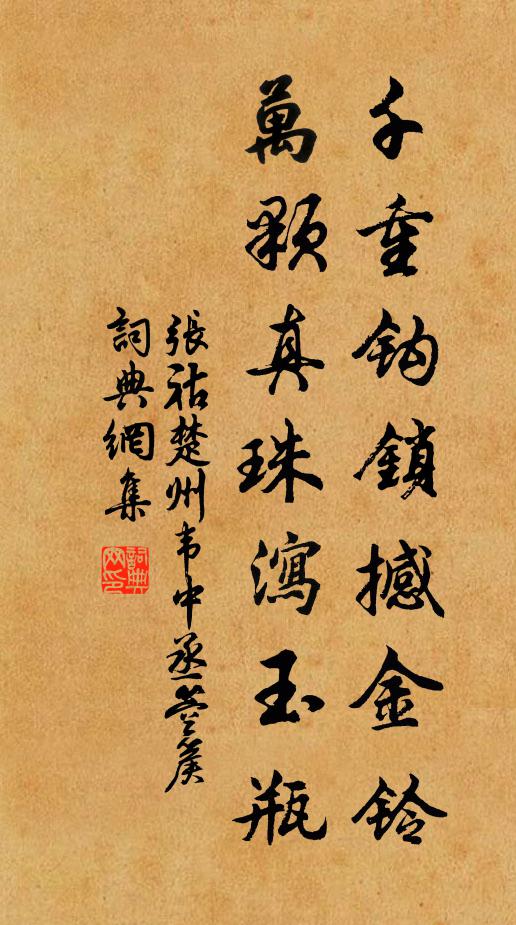 千重鈎鎖撼金鈴
萬顆真珠瀉玉瓶
張祜楚州韦中丞箜篌
詞典網集
詞典
网印